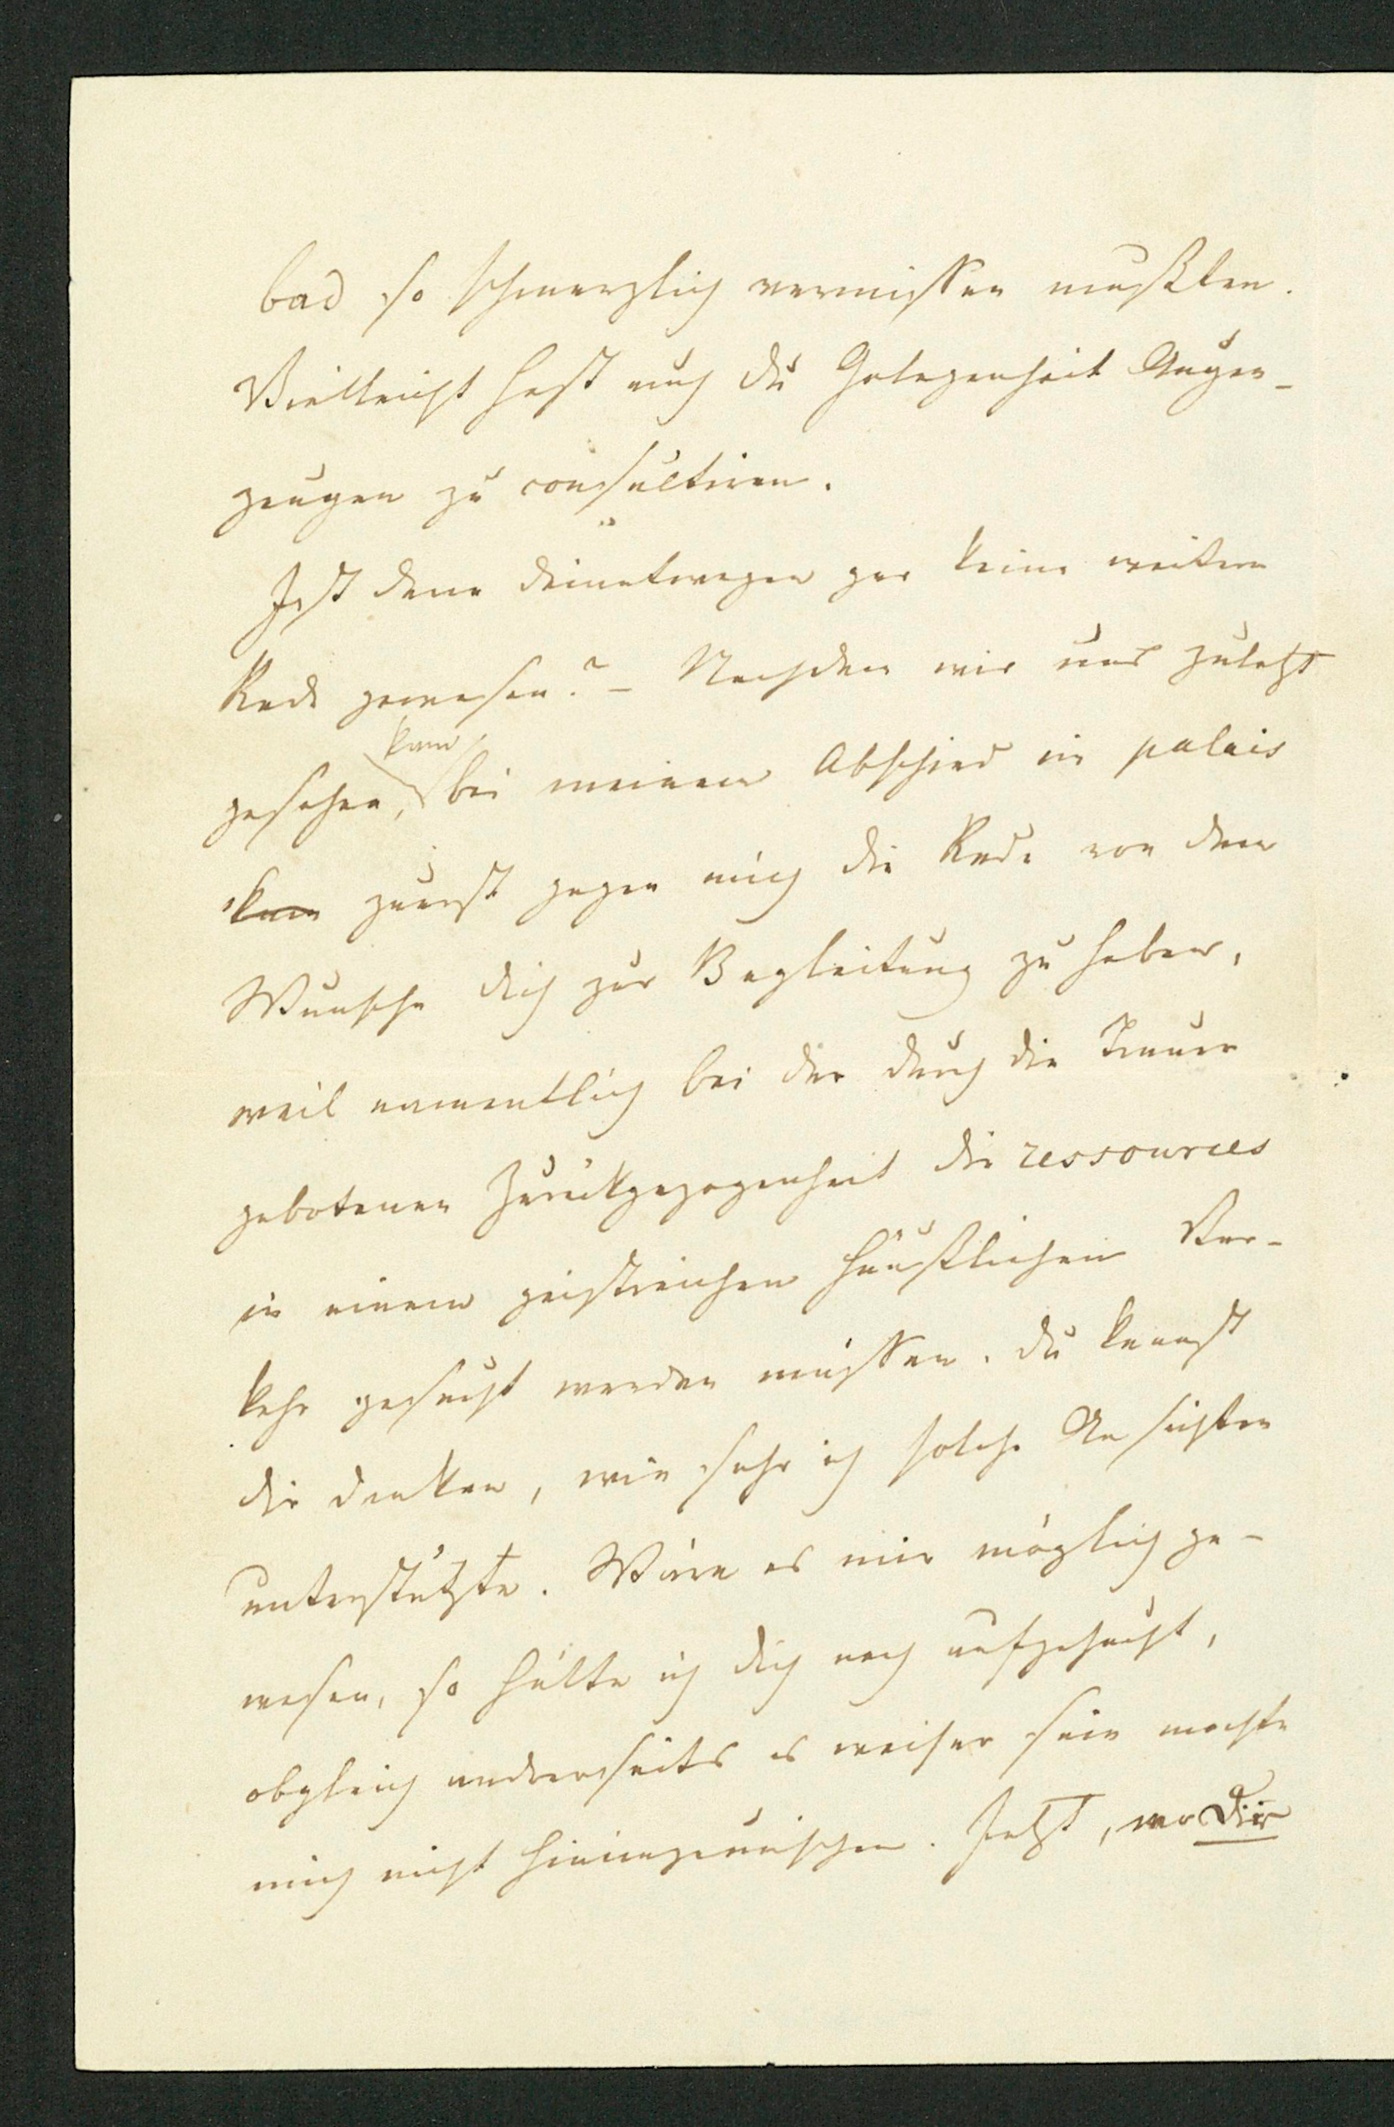 bad so schmerzlich vermissen mußten.
Vielleicht hast auch du Gelegenheit Augen-
zeugen zu consultiren.
Ist denn deinetwegen gar keine weitere
Rede gewesen? – Nachdem wir uns zuletzt
kam
gesehen, bei meinem Abschied im palais
kam zuerst gegen mich die Rede von dem
Wunsche dich zur Begleitung zu haben,
weil namentlich bei der durch die Trauer
gebotenen Zurückgezogenheit die ressources
in einem geistreichen häußlichen Ver-
kehr gesucht werden müssen. Du kannst
dir denken, wie sehr ich solche Ansichten
unterstützte. Wäre es mir möglich ge-
wesen, so hätte ich dich noch aufgesucht,
obgleich andrerseits es weiser sein mochte
mich nicht hineinzumischen. Jetzt, wo Dir